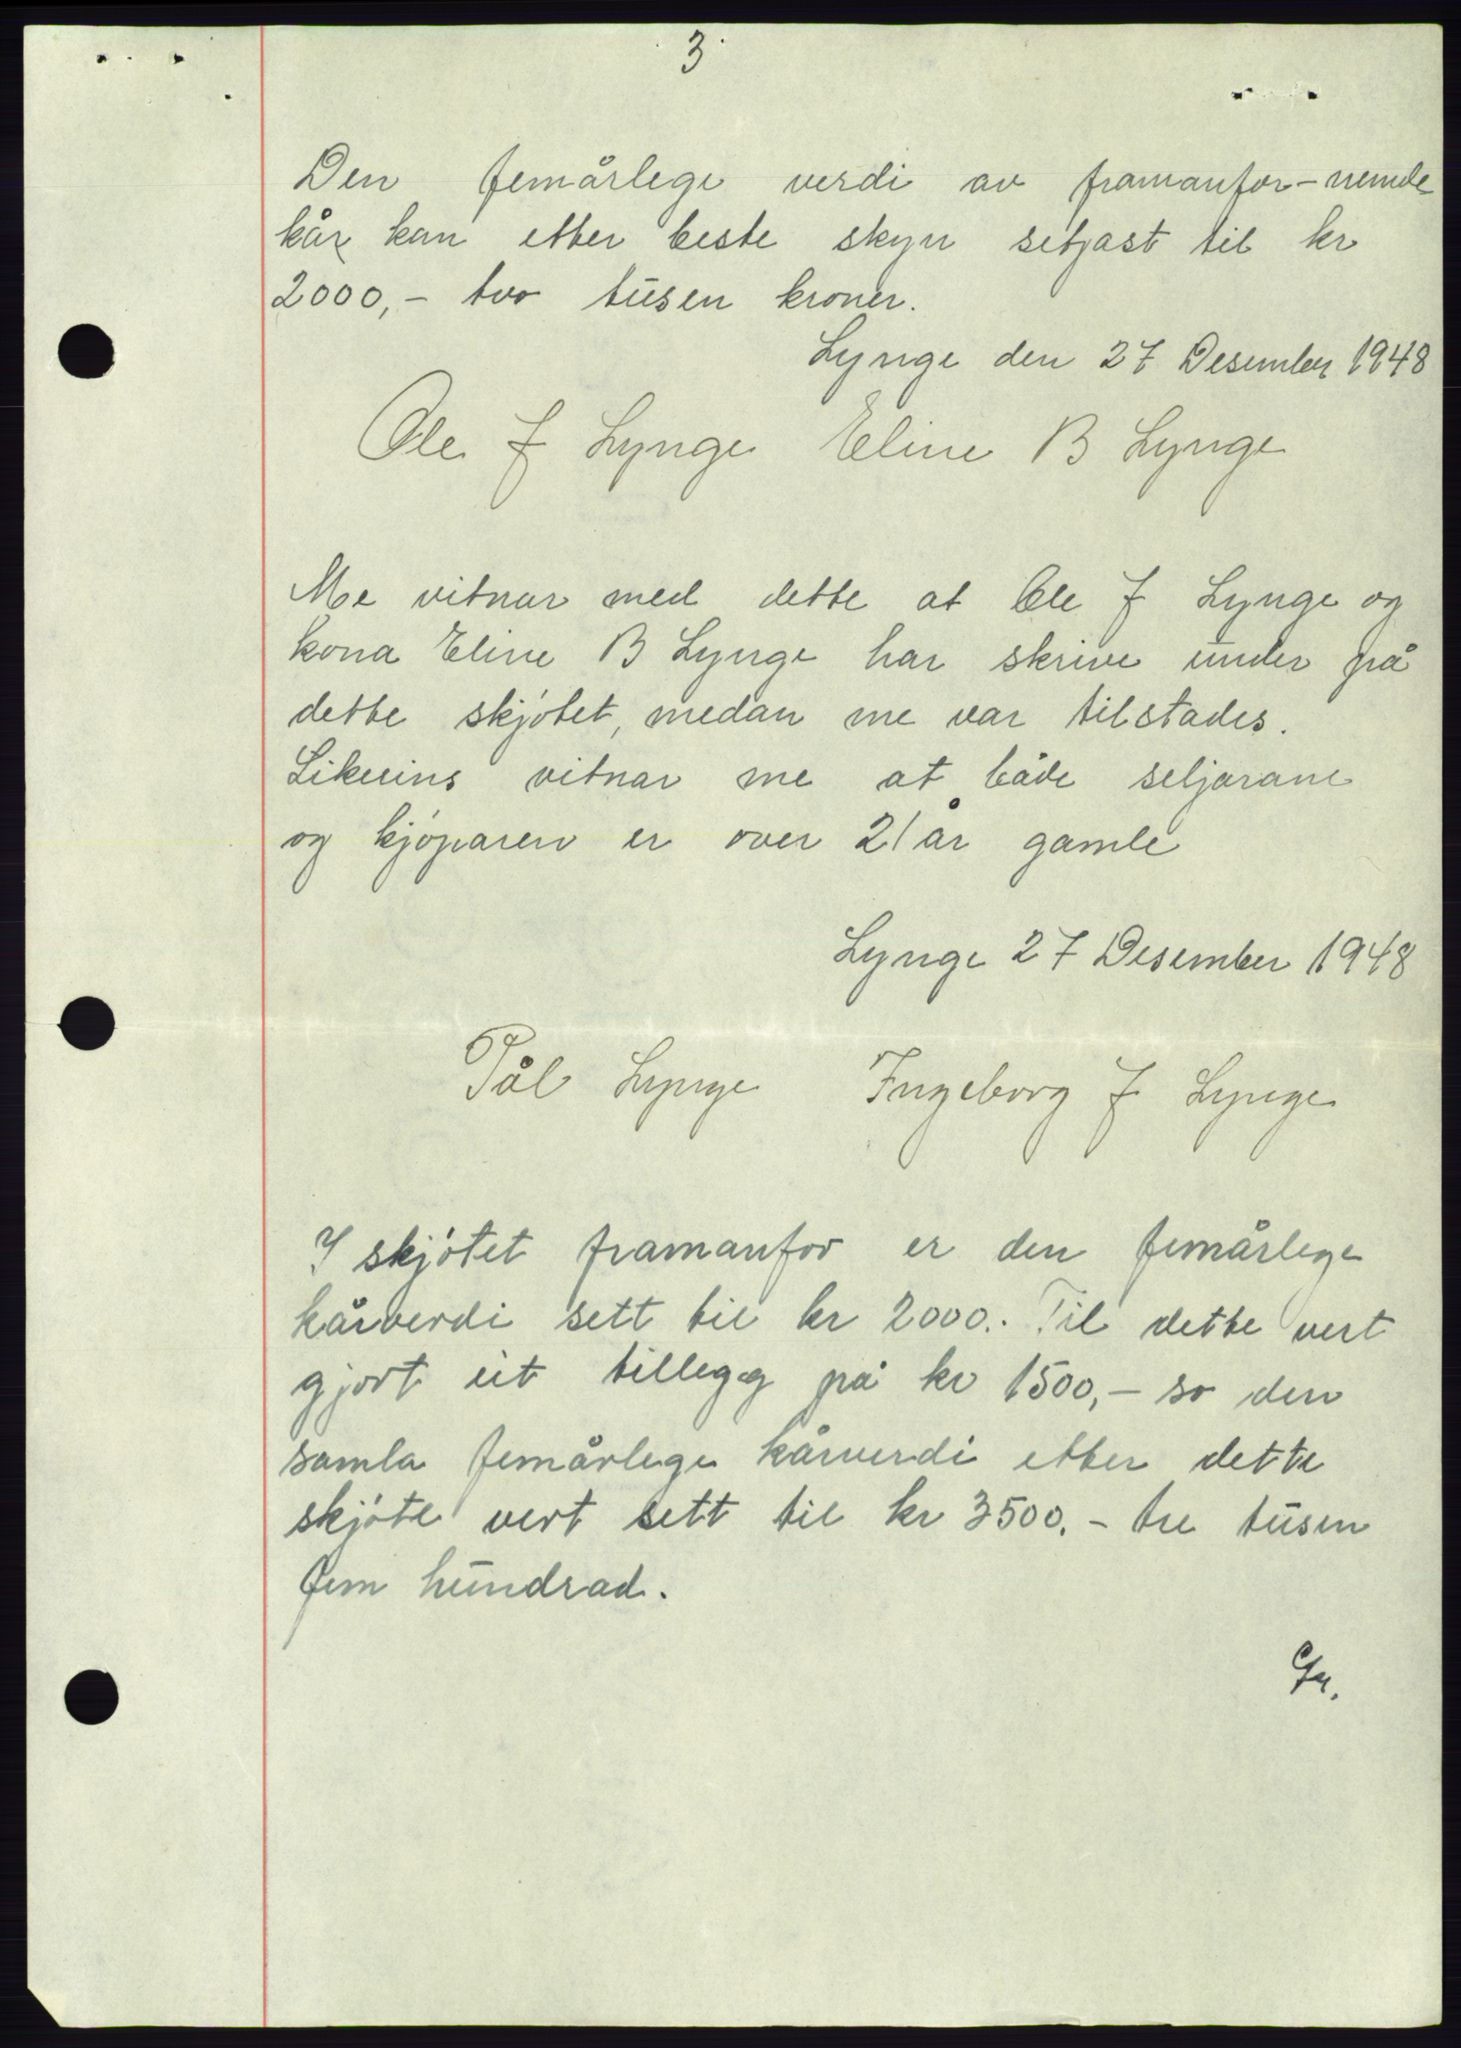 3
Den femårlege verdi av framanfor-nemde
kår kan etter beste skyn setjast til kr
2000,- tvo tusen kroner.
Lynge den 27 Desember 1948
Ole J Lynge Eline B Lynge
Me vitnar med dette at Ole J Lynge og
kona Eline B Lynge har skrive under på
dette skjøtet, medan me var tilstades.
Likeeins vitnar me at både seljarane
og kjøparen er over 21 år gamle
Lynge 27 Desember 1948
Pål Lynge Ingeborg J Lynge
I skjøtet framanfor er den femårlege
kårverdi sett til kr 2000.- Til dette vert
gjort eit tillegg på kr 1500,- so den
samla femårlege kårverdi etter dette
skjøte vert sett til kr 3500.- tre tusen
fem hundrad.